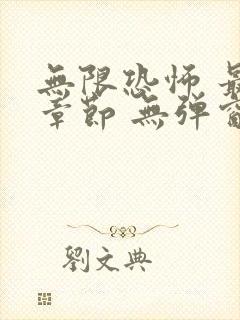 無限恐怖
章節 無弹
劉文典